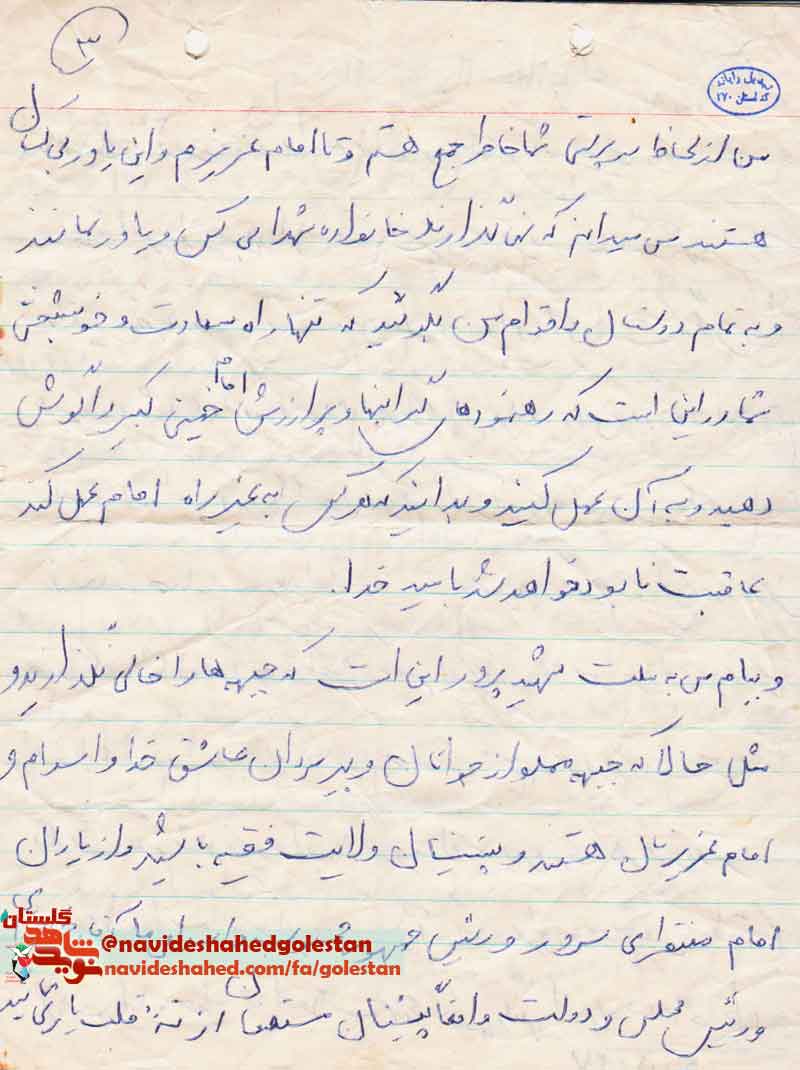 ۳
من از لحاظ سرپرستی شما خاطر جمع هستم و تا امام عزیزم و این یاور بی کسان
هستند من میدانم که نمی گذارند خانواده شهدا بی کس و یاور بمانند
و به تمام دوستان و اقوام من بگوئید که تنها راه سعادت و خوشبختی
شما در این است که رهنمودهای گرانبها و پر ارزش امام خمینی کبیر را گوش
دهید و به آن عمل کنید و بدانید که هرکس به غیر راه امام عمل کند
عاقبت نابود خواهد شد بامید خدا.
و پیام من به ملت شهید پرور این است که جبهه ها را خالی نگذارید و
مثل حالا که جبهه مملو از جوانان و پیرمردان عاشق خدا و اسلام و
امام عزیزمان هستند و پشتیبان ولایت فقیه باشید و از یاران
امام منتظری سرور و رئیس جمهور
و رئیس مجلس و دولت واقعاً پشتیبان مستضعفان از ته قلب یاری نمایید
نوید شاهد گلستان
@navideshahedgolestan
navideshahed.com/fa/golestan